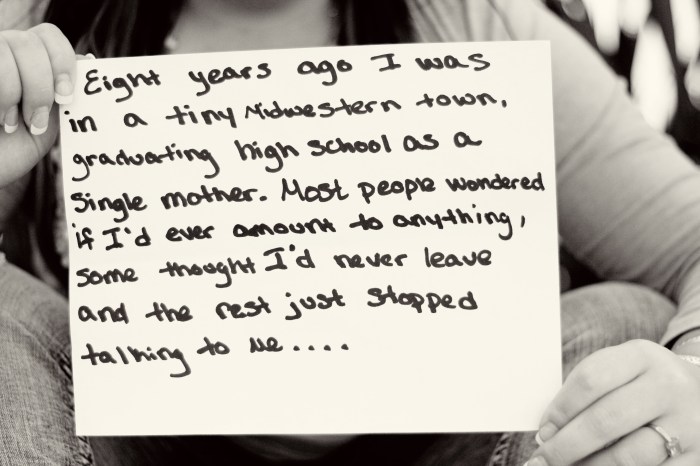 Eight years ago I was
in a tiny Midwestern town,
graduating high school as a
single mother. Most people wondered
if I'd ever amount to anything,
some thought I'd never leave
and the rest just stopped
talking to me....